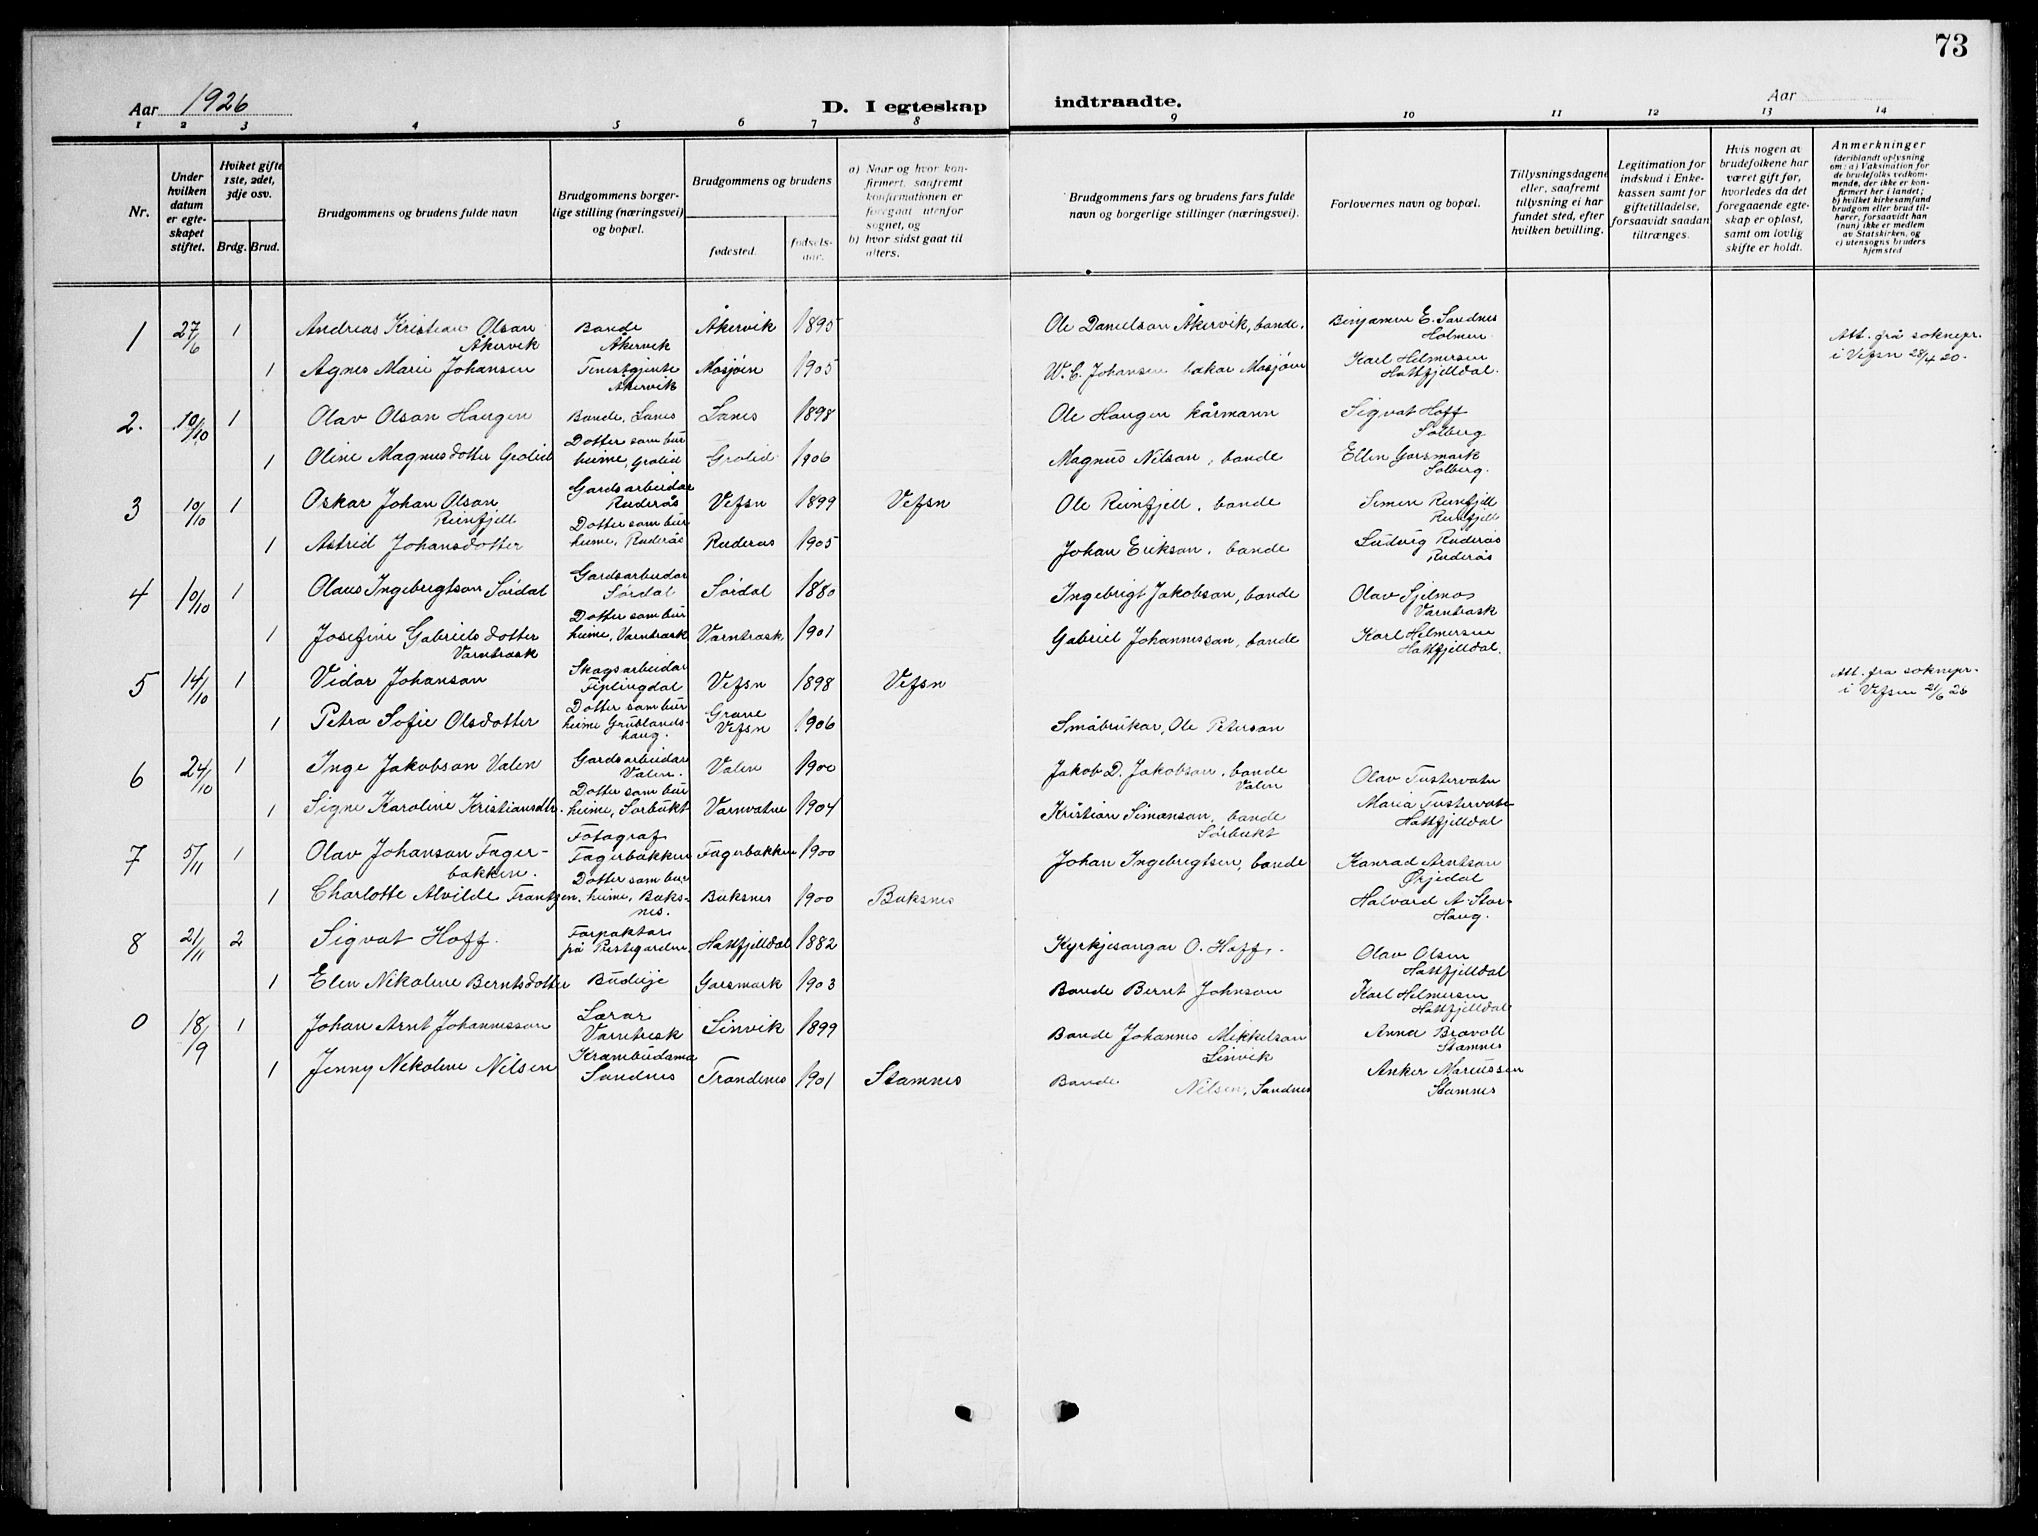 73
Aar 1926
D. I egteskap indtraadte.
Aar
1 2 3 4 5 6 7 8 9 10 11 12 13 14
Nr.
Under hvilken datum er egteskapet stiftet.
Hviket gifte 1ste, 2det, 3dje osv.
Brdg. Brud.
Brudgommens og brudens fulde navn
Brudgommens borgerlige stilling (næringsvei) og bopæl.
Brudgommens og brudens
fødested. fødselsaar.
a) Naar og hvor konfirmert, saafremt konfirmationen er foregaat utenfor sognet, og
b) hvor sidst gaat til alters.
Brudgommens fars og brudens fars fulde navn og borgerlige stillinger (næringsvei).
Forlovernes navn og bopæl.
Tillysningsdagene eller, saafremt tillysning ei har fundet sted, efter hvilken bevilling.
Legitimation for indskud i Enkekassen samt for giftetilladelse, forsaavidt saadan tiltrænges.
Hvis nogen av brudefolkene har været gift før, hvorledes da det foregaaende egteskap er opløst, samt om lovlig skifte er holdt.
Anmerkninger
(deriblandt oplysning om: a) Vaksination for de brudefolks vedkommende, der ikke er konfirmert her i landet; b) hvilket kirkesamfund brudgom eller brud tilhører, forsaavidt han (hun) ikke er medlem av Statskirken, og c) utensogns bruders hjemsted
1 27/6 1 Andreas Kristian Olsan Åkervik Bonde Åkervik Åkervik 1895 Ole Danielsan Åkervik, bonde. Benjamin E. Sandnes Holmen Att. frå soknepr. i Vefsn 28/4 20.
1 Agnes Marie Johansen Tenestgjente Åkervik Mosjøen 1905 W. C. Johansen bakar Mosjøen Karl Helmersen Hattfjelldal.
2. 10/10 1 Olav Olsan Haugen Bonde, Sanes Sanes 1898 Ole Haugen kårmann Sigvat Hoff Solberg
1 Oline Magnusdotter Grolid Dotter som bur heime, Grolid Grolid 1906 Magnus Nilsan, bonde Ellen Garsmark Solberg.
3 10/10 1 Oskar Johan Olsan Reinfjell Gardsarbeidar Ruderås Vefsn 1899 Vefsn Ole Reinfjell, bonde Simon Reinfjell Reinfjell
1 Astrid Johansdotter Dotter som bur heime, Ruderås Ruderås 1905 Johan Eriksan, bonde Ludvig Ruderås Ruderås
4 10/10 1 Olaus Ingebrigtsan Sørdal Gardsarbeidar Sørdal Sørdal 1880 Ingebrigt Jakobsan, bonde Olav Sjelmos Varntrask
1 Josefine Gabrielsdotter Varntrask Dotter som bur heime, Varntrask Varntrask 1901 Gabriel Johannessan, bonde Karl Helmersen Hattfjelldal.
5 14/10 1 Vidar Johansan Skogsarbeidar Fiplingdal Vefsn 1898 Vefsn Att. fra soknepr. i Vefsn 21/6 26
1 Petra Sofie Olsdotter Dotter som bur heime Grublandshaug. Grane Vefsn 1906 Småbrukar, Ole Petersan
6 24/10 1 Inge Jakobsan Valen Gardsarbeidar Valen. Valen 1900 Jakob D. Jakobsan, bonde Valen Olav Tustervatn
1 Signe Karoline Kristiansdtr. Dotter som bur heime, Sørbukt Varnvatne 1904 Kristian Simonsan, bonde Sørbukt Maria Tustervatn Hattfjelldal
7 5/11 1 Olav Johansan Fagerbakken. Fotograf Fagerbakken Fagerbakken 1900 Johan Ingebrigtsen, bonde Konrad Arntsan Ørjedal
1 Charlotte Alvilde Frantzen. Dotter som bur heime, Buksnes. Buksnes 1900 Buksnes Halvard A. Storhaug.
8 21/11 2 Sigvat Hoff. Forpaktar på Prestegarden Hattfjelldal 1882 Kyrkjesongar O. Hoff. Olav Olsen Hattfjelldal
1 Elen Nikoline Berntsdotter Budeije Garsmark 1903 Bonde Bernt Johnson Karl Helmersen Hattfjelldal
0 18/9 1 Johan Arnt Johannessan Lærar Varntresk Sinvik 1899 Bonde Johannes Mikkelsan Sinvik Anna Bravoll Stamnes
1 Jenny Nikoline Nilsen Krambudama Sandnes Trondenes 1901 Stamnes Bonde Nilsen, Sandnes Anker Mariussen Stamnes